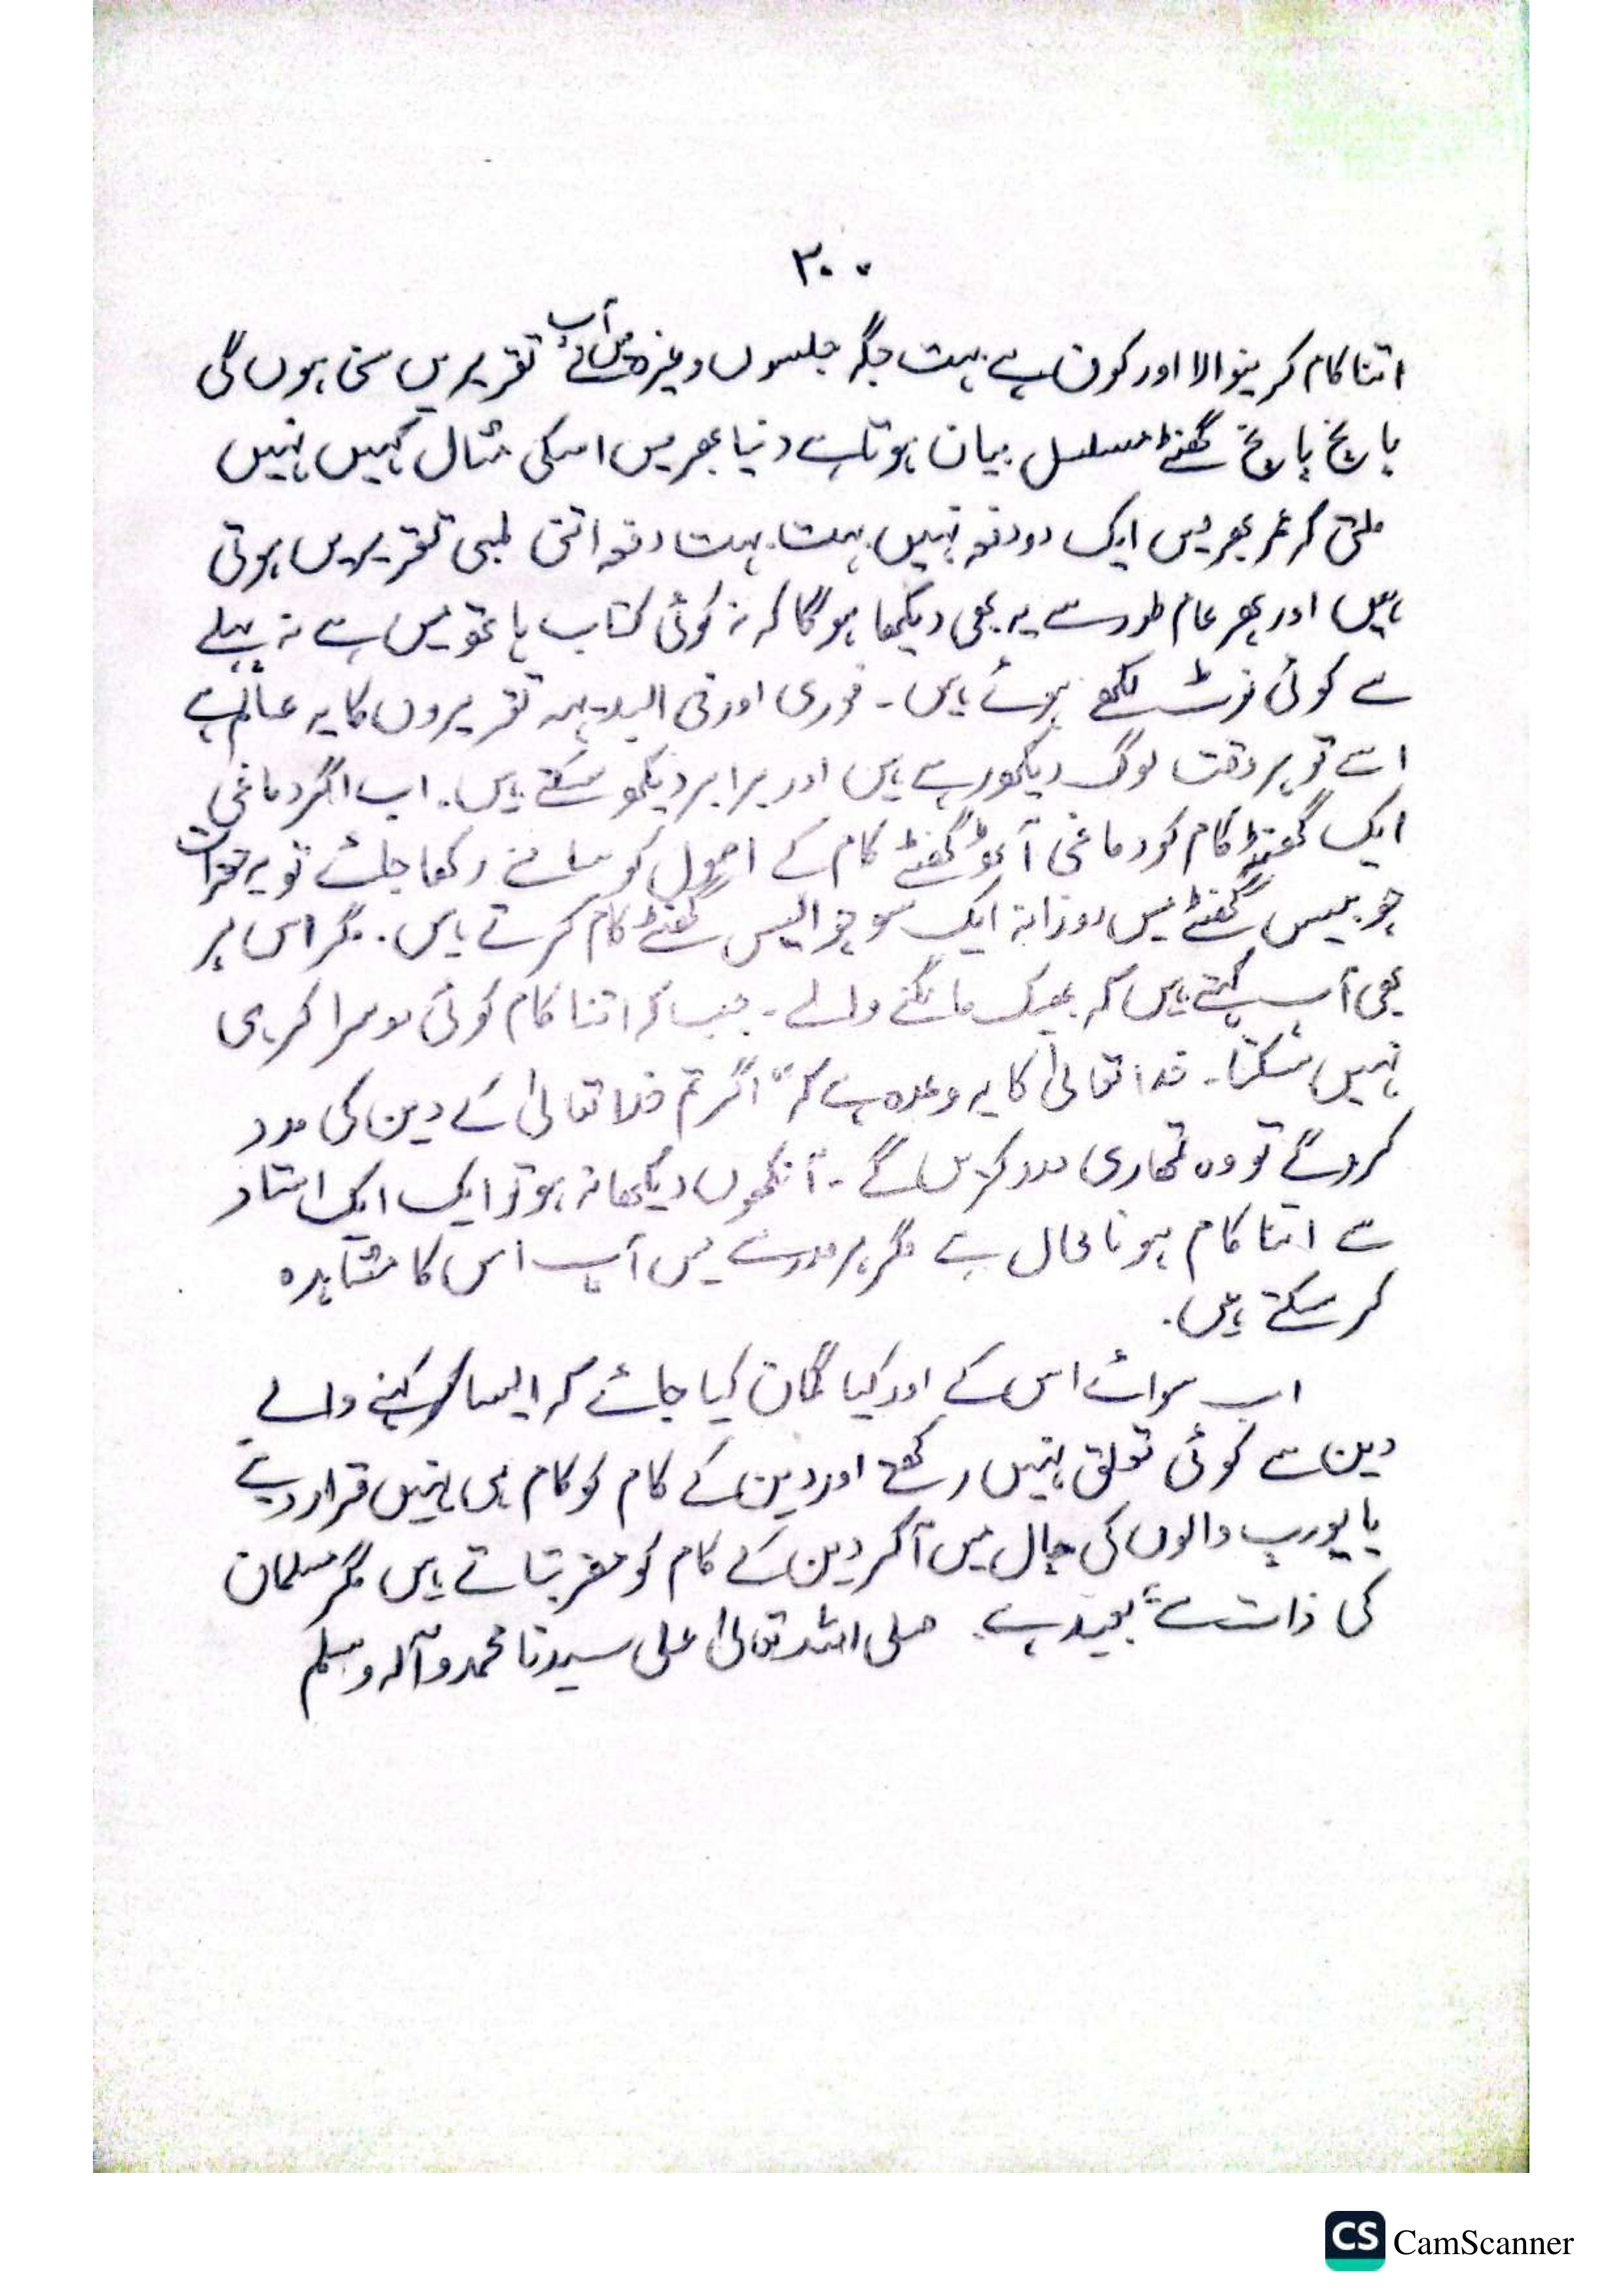 ۳۰۰
اتنا کام کرنیوالا اور کون ہے بہت جگہ جلسوں وغیرہ میں آپ نے تقریریں سنی ہوں گی
پانچ پانچ گھنٹے مسلسل بیان ہوتا ہے دنیا بھر میں اسکی مثال کہیں نہیں
ملتی کہ عمر بھر میں ایک دو دفعہ نہیں بہت بہت دفعہ اتنی لمبی تقریریں ہوتی
ہیں اور پھر عام طور سے یہ بھی دیکھا ہو گا کہ نہ کوئی کتاب ہاتھ میں ہے نہ پہلے
سے کوئی نوٹ لکھے ہوئے ہیں ۔ فوری اور فی البدیہہ تقریروں کا یہ عالم ہے
اسے تو ہر وقت لوگ دیکھ رہے ہیں اور برابر دیکھ سکتے ہیں ۔ اب اگر دماغی
ایک گھنٹہ کام کو دماغی آٹھ گھنٹے کام کے اصول کو سامنے رکھا جائے تو یہ حضرات
چوبیس گھنٹے میں روزانہ ایک سو چوالیس گھنٹے کام کرتے ہیں ۔ مگر اس پر
بھی آپ کہتے ہیں کہ بھیک مانگنے والے ۔ جب کہ اتنا کام کوئی دوسرا کر ہی
نہیں سکتا ۔ خدا تعالیٰ کا یہ وعدہ ہے کہ " اگر تم خدا تعالیٰ کے دین کی مدد
کروگے تو وہ تمھاری مدد کریں گے ۔ آنکھوں دیکھا نہ ہو تو ایک ایک استاد
سے اتنا کام ہونا محال ہے مگر ہر مدرسے میں آپ اس کا مشاہدہ
کر سکتے ہیں ۔
اب سوائے اس کے اور کیا گمان کیا جائے کہ ایسا کہنے والے
دین سے کوئی تعلق نہیں رکھتے اور دین کے کام کو کام ہی نہیں قرار دیتے
یا یورپ والوں کی چال میں آکر دین کے کام کو مضر بتاتے ہیں مگر مسلمان
کی ذات سے بعید ہے ۔ صلی اللہ تعالیٰ علی سیدنا محمد و آلہ وسلم
CS CamScanner